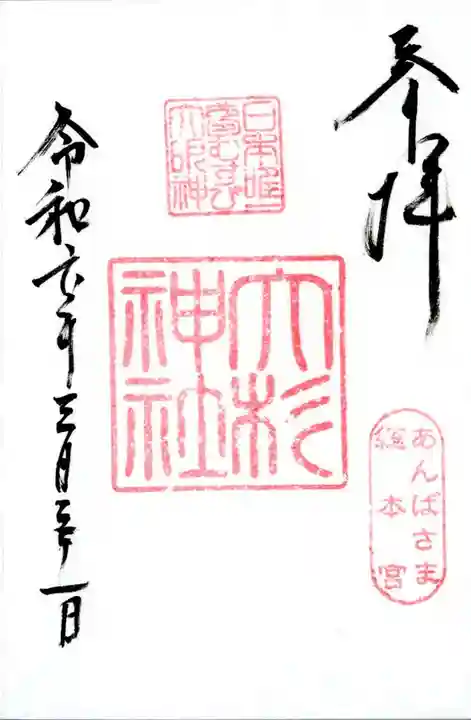 奉拝
日本唯一
夢むすび
大明神
大杉
神社
あんばさま
総本宮
令和六年三月二十一日